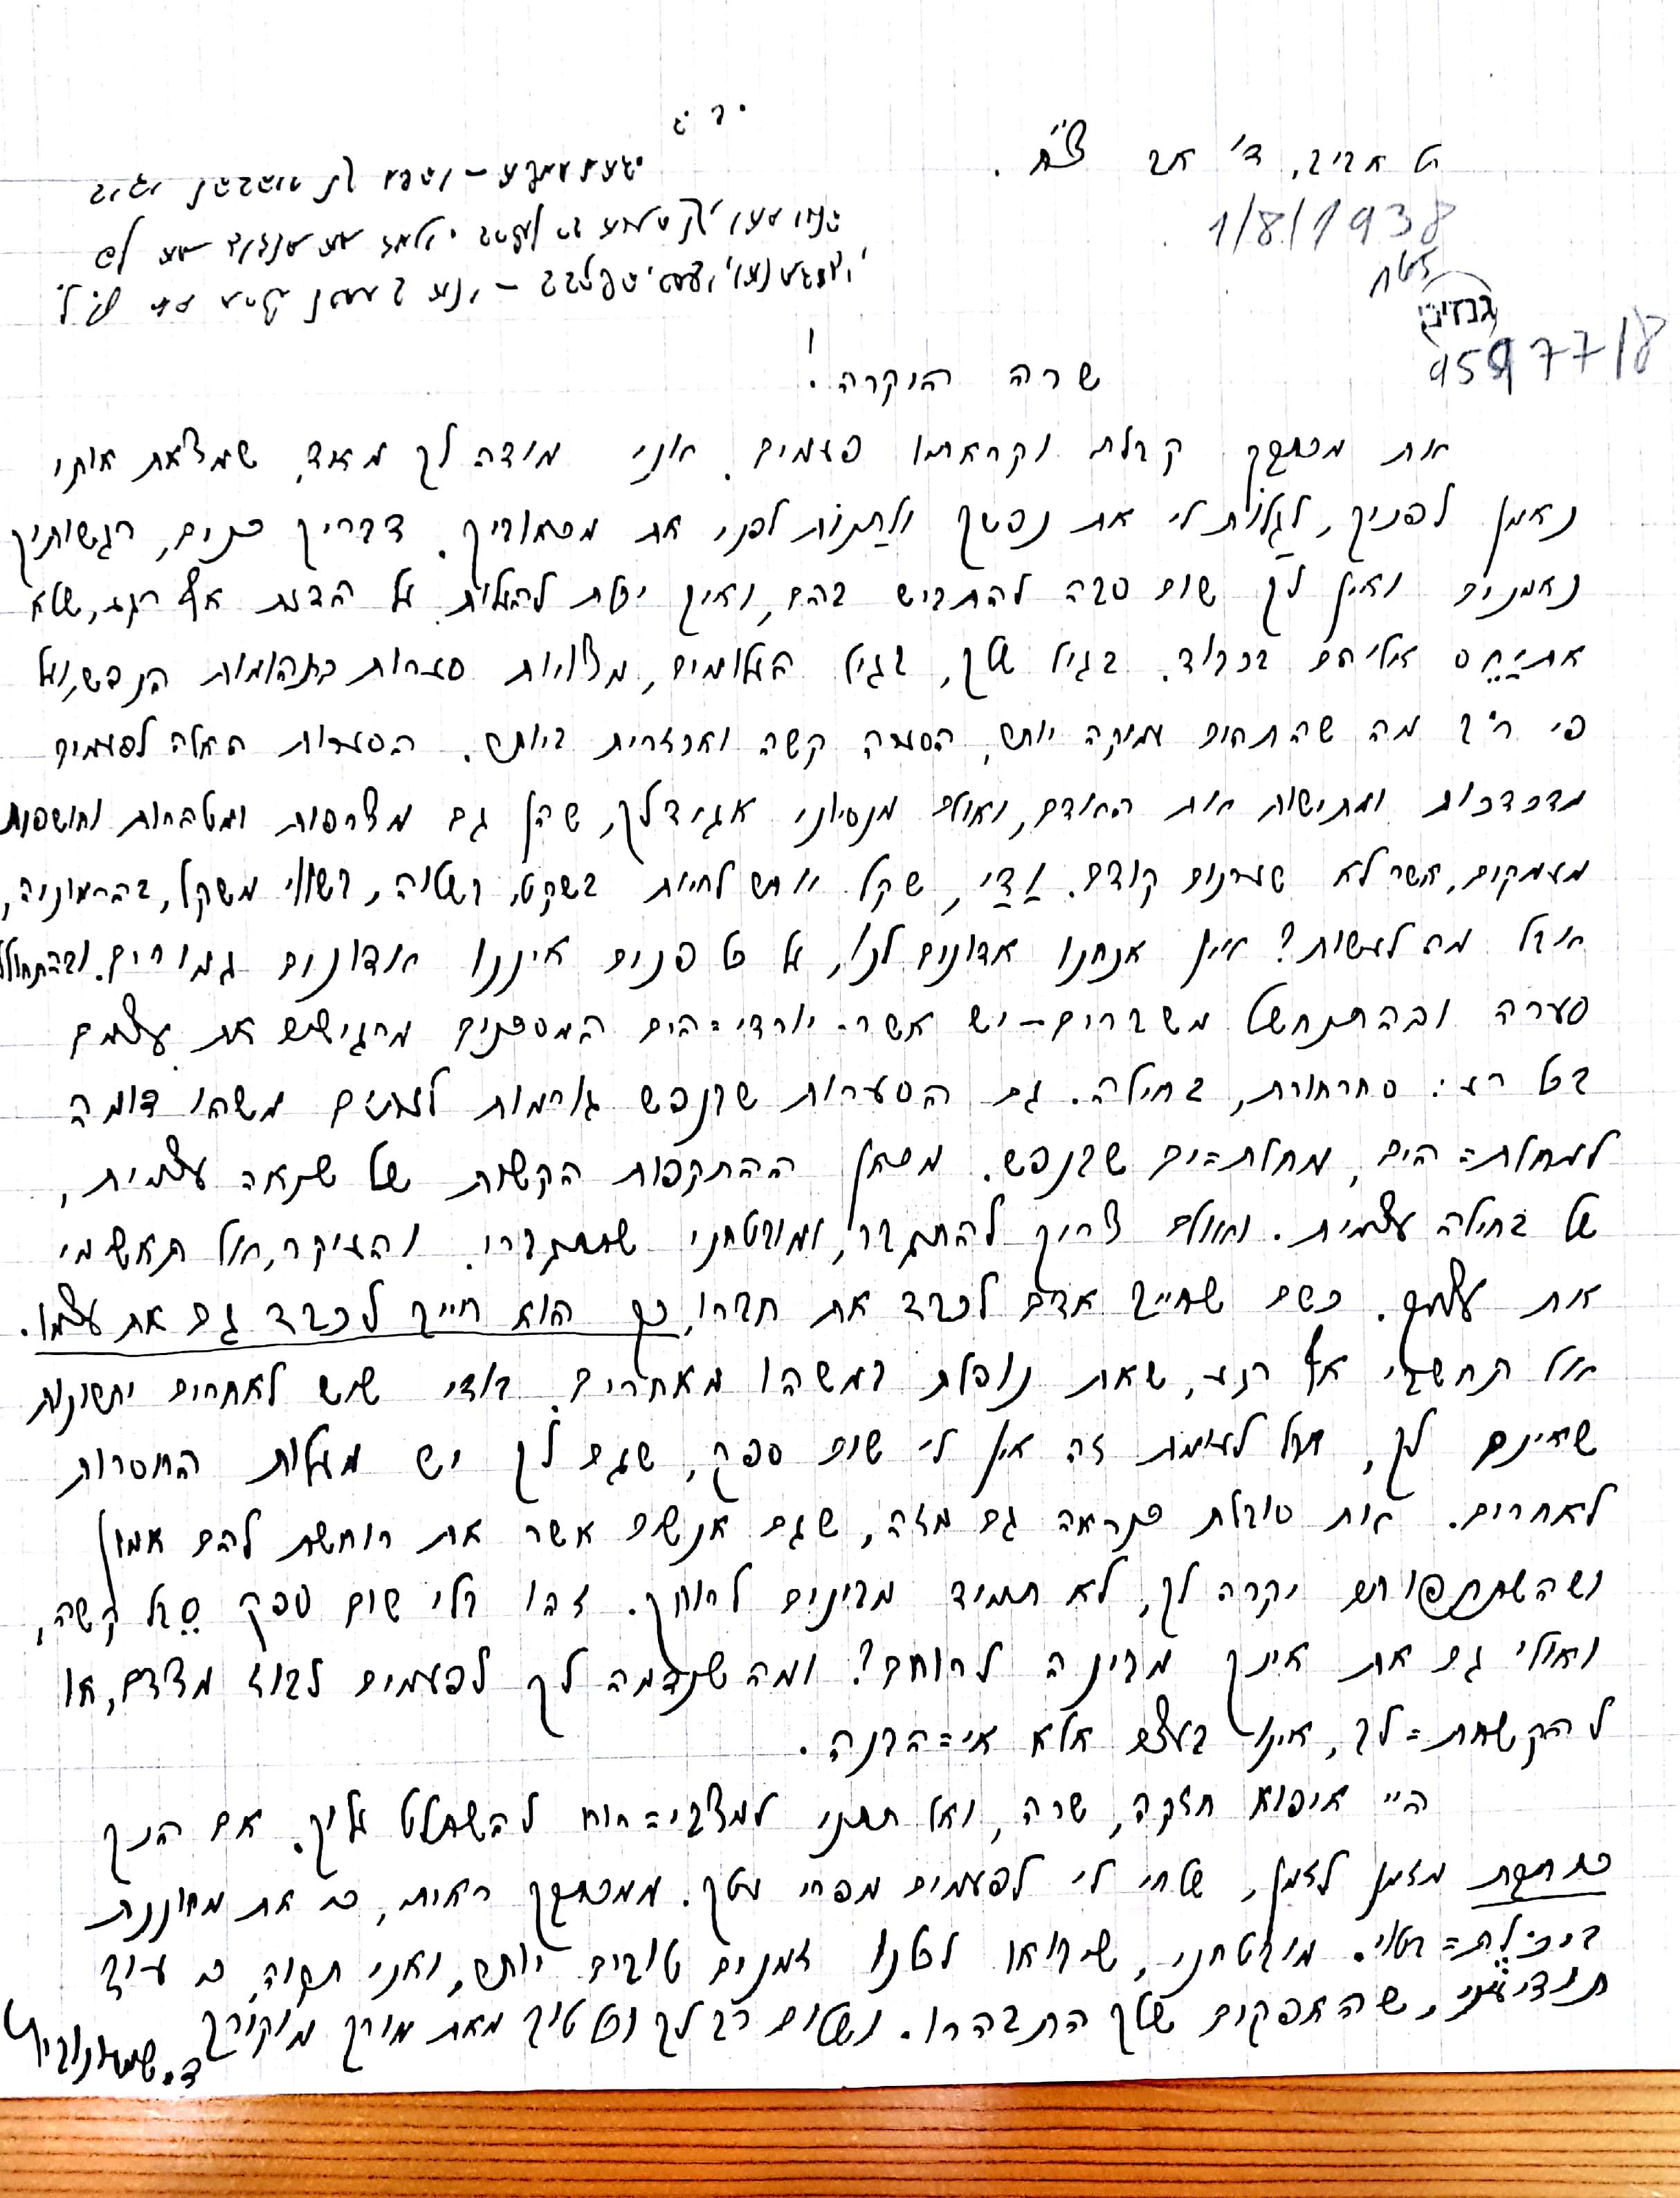 ת אביב, ד' אב צ"ח.
1/8/1938
גנזים
95977/8
שרה היקרה!
את מכתבך קבלתי וקראתיו פעמים. אני מודה לך מאד, שמצאת אותי
נאמן לפניך, לגלות לי את נפשך ולתנות לפני את מכאוביך. דבריך כנים, רגשותיך
נאמנים ואין לך שום סבה להתביש בהם, ואיך יכולת להעלות על הדעת אף רגע, שלא
אתיחס אליהם בכבוד. בגיל שלך, בגיל העלומים, מצויות סערות בתהומות הנפש, ועל
פי ר"ב מה שהתהום עמוקה יותר, הסערה קשה ואכזרית ביותר. הסערות האלה לפעמים
מדכדכות ומתישות את האדם, ואולם מנסיוני אגיד לך, שהן גם מצרפות ומטהרות וחושפות
מעמקים, אשר לא שערנום קודם. ודאי, שקל יותר לחיות בשקט, בשלוה, בשווי משקל, בהרמוניה,
אבל מה לעשות? אין אנחנו אדונים לנו, על כל פנים איננו אדונים גמורים. ובהתחולל
סערה ובהתנחשל משברים – יש אשר יורדי=הים המסכנים מרגישים את עצמם
בכל רע: סחרחורת, בחילה. גם הסערות שבנפש גורמות לעתים משהו דומה
למחלת=הים, מחלת=ים שבנפש. מכאן ההתקפות הקשות של שנאה עצמית,
של בחילה עצמית. ואולם צריך להתגבר, ומובטחני שתתגברי. והעיקר, אל תאשמי
את עצמך. כשם שחייב אדם לכבד את חברו, כך הוא חייב לכבד גם את עצמו.
אל תחשבי אף רגע, שאת נופלת במשהו מאחרים. בודאי שיש לאחרים יתרונות
שאינם לך, אבל לעומת זה אין לי שום ספק, שגם לך יש מעלות החסרות
לאחרים. את סובלת כנראה גם מזה, שגם אנשים אשר את רוחשת להם אמון
ושהשתתפותם יקרה לך, לא תמיד מבינים לרוחך. זהו בלי שום ספק סבל קשה,
ואולי גם את אינך מבינה לרוחם? ומה שנדמה לך לפעמים לבוז מצדם, או
להקשחת=לב, אינו בעצם אלא אי=הבנה.
היי איפוא חזקה, שרה, ואל תתני למצבי=רוח להשתלט עליך. אם הנך
כותבת מזמן לזמן, שלחי לי לפעמים מפרי עטך. ממכתבך ראיתי, כי את מחוננת
ביכולת=בטוי. מובטחני, שיבואו לכולנו זמנים טובים יותר, ואני תקוה כי עוד
תודיעיני, שהאפקים שלך התבהרו. ושלום רב לך וכל טוב מאת מורך מוקירך
ד. שמעונוביץ